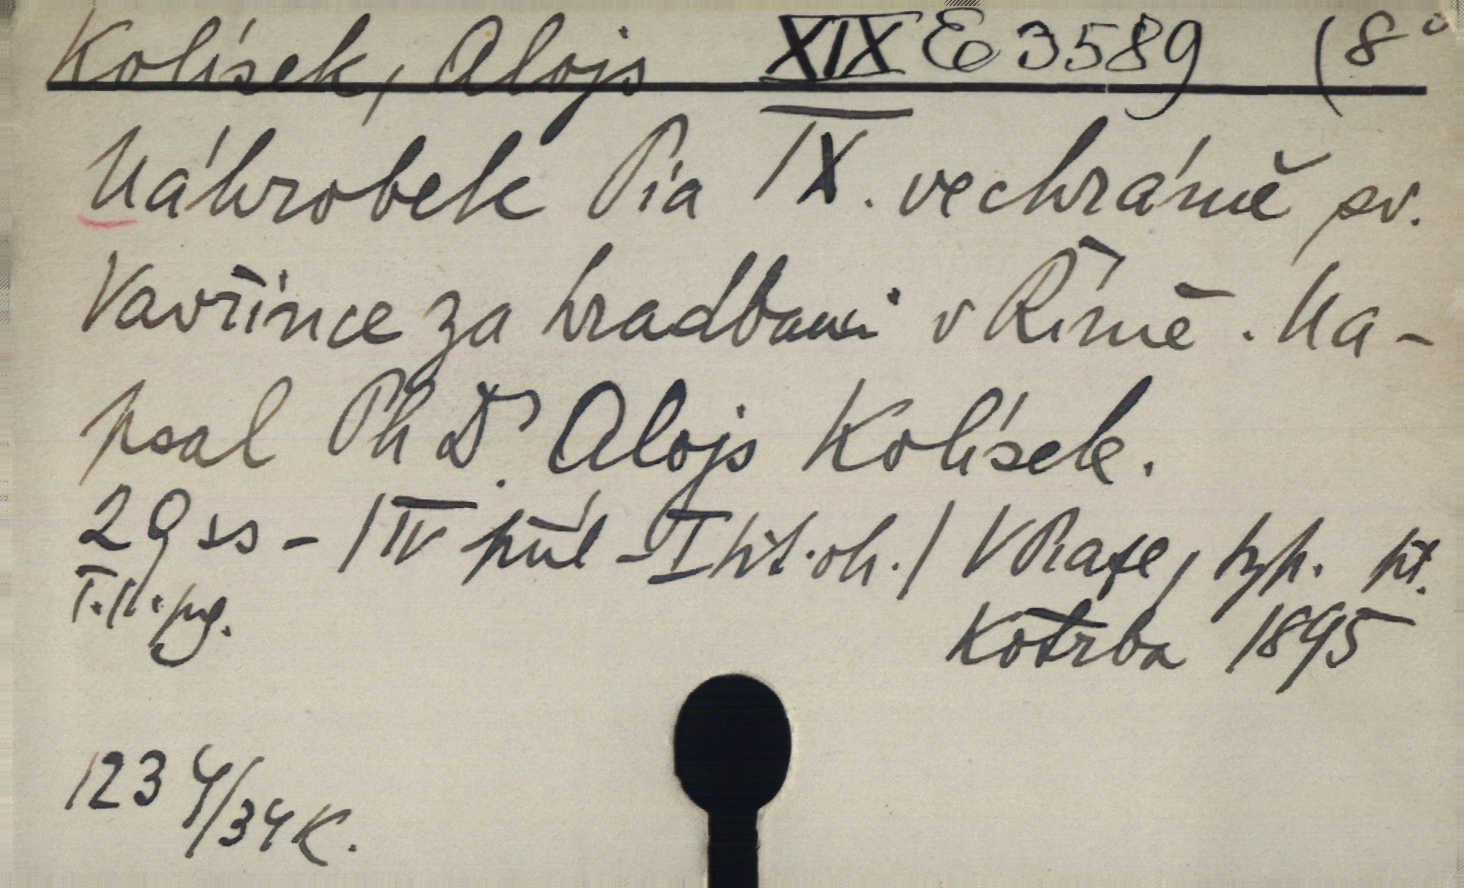 Kolísek, Alojs XIX E 3589 (8°
Náhrobek Pia IX. ve chrámě sv.
Vavřince za hradbami v Římě. Na-
psal PhDr. Alojs Kolísek.
29 ss - /IV příl - I
V Praze, typ.
Kotrba 1895
1234/34 K.